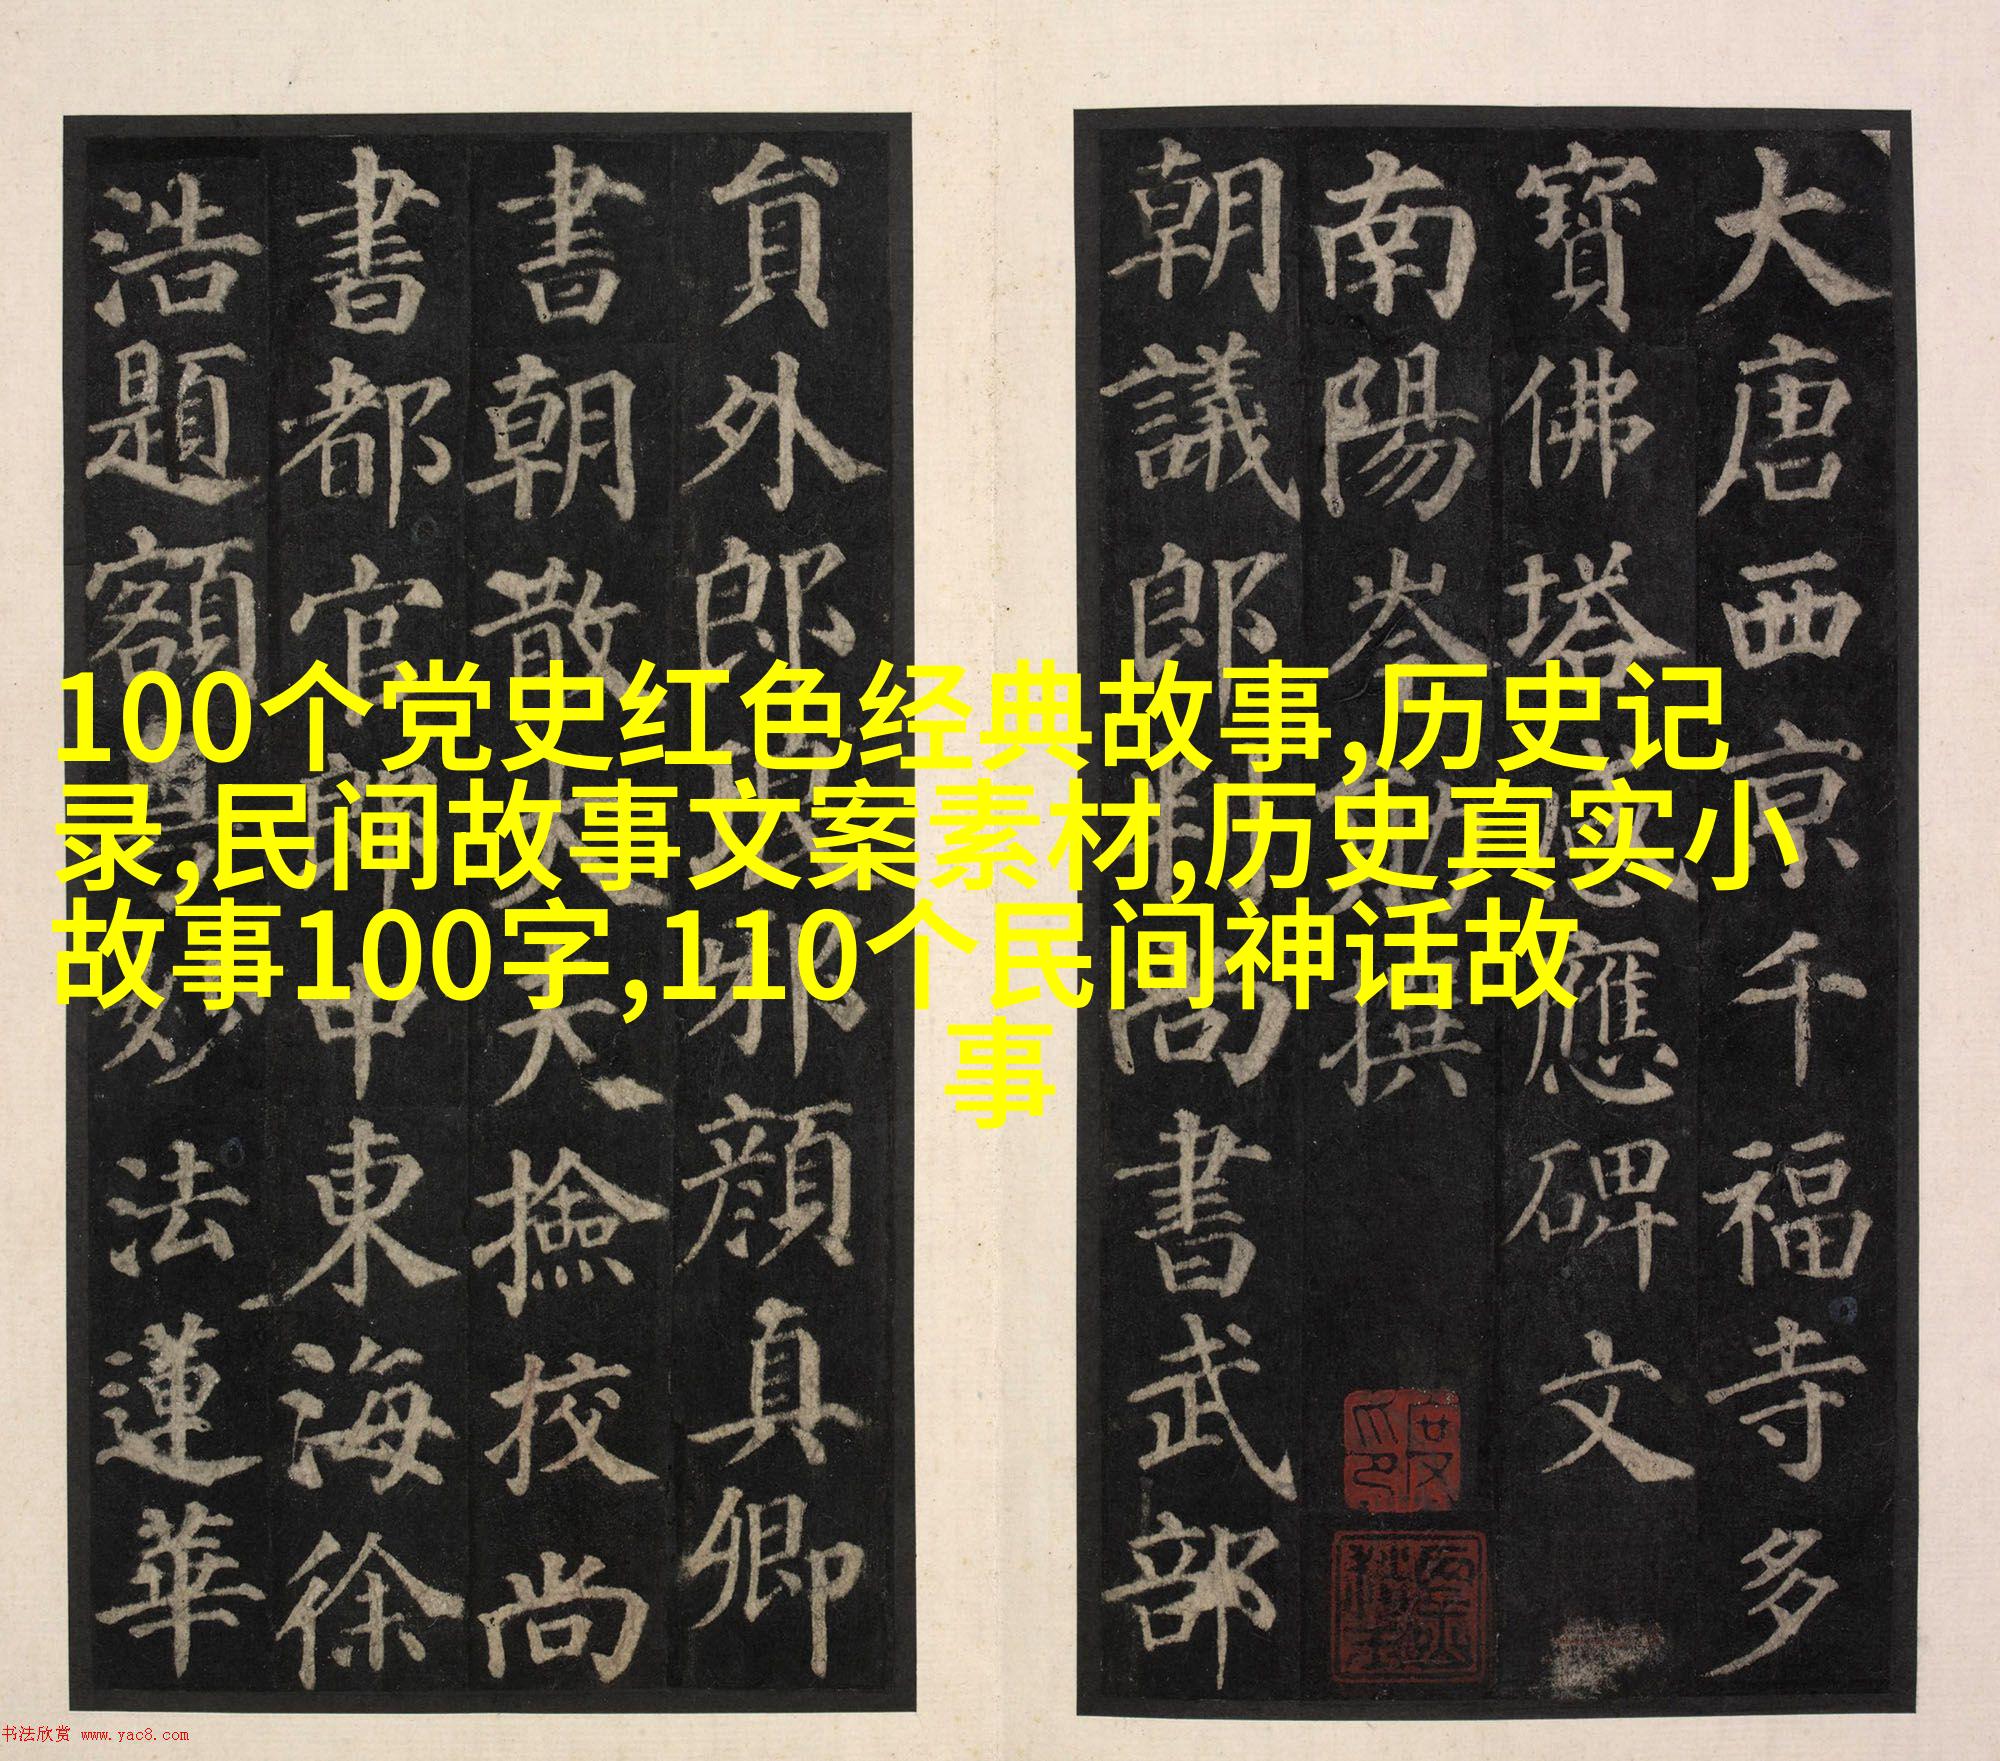 100个党史红色经典故事,历史记
录,民间故事文案素材,历史真实小
故事100字,110个民间神话故
事
大唐西京千福寺多
寶佛塔感應碑文
南陽岑勛撰
朝議郎判尚書武部
貟外郎琅邪顏真卿
書朝散大夫撿校尚
書都官郎中東海徐
浩題額粵妙法蓮華
书法欣赏 www.yac8.com